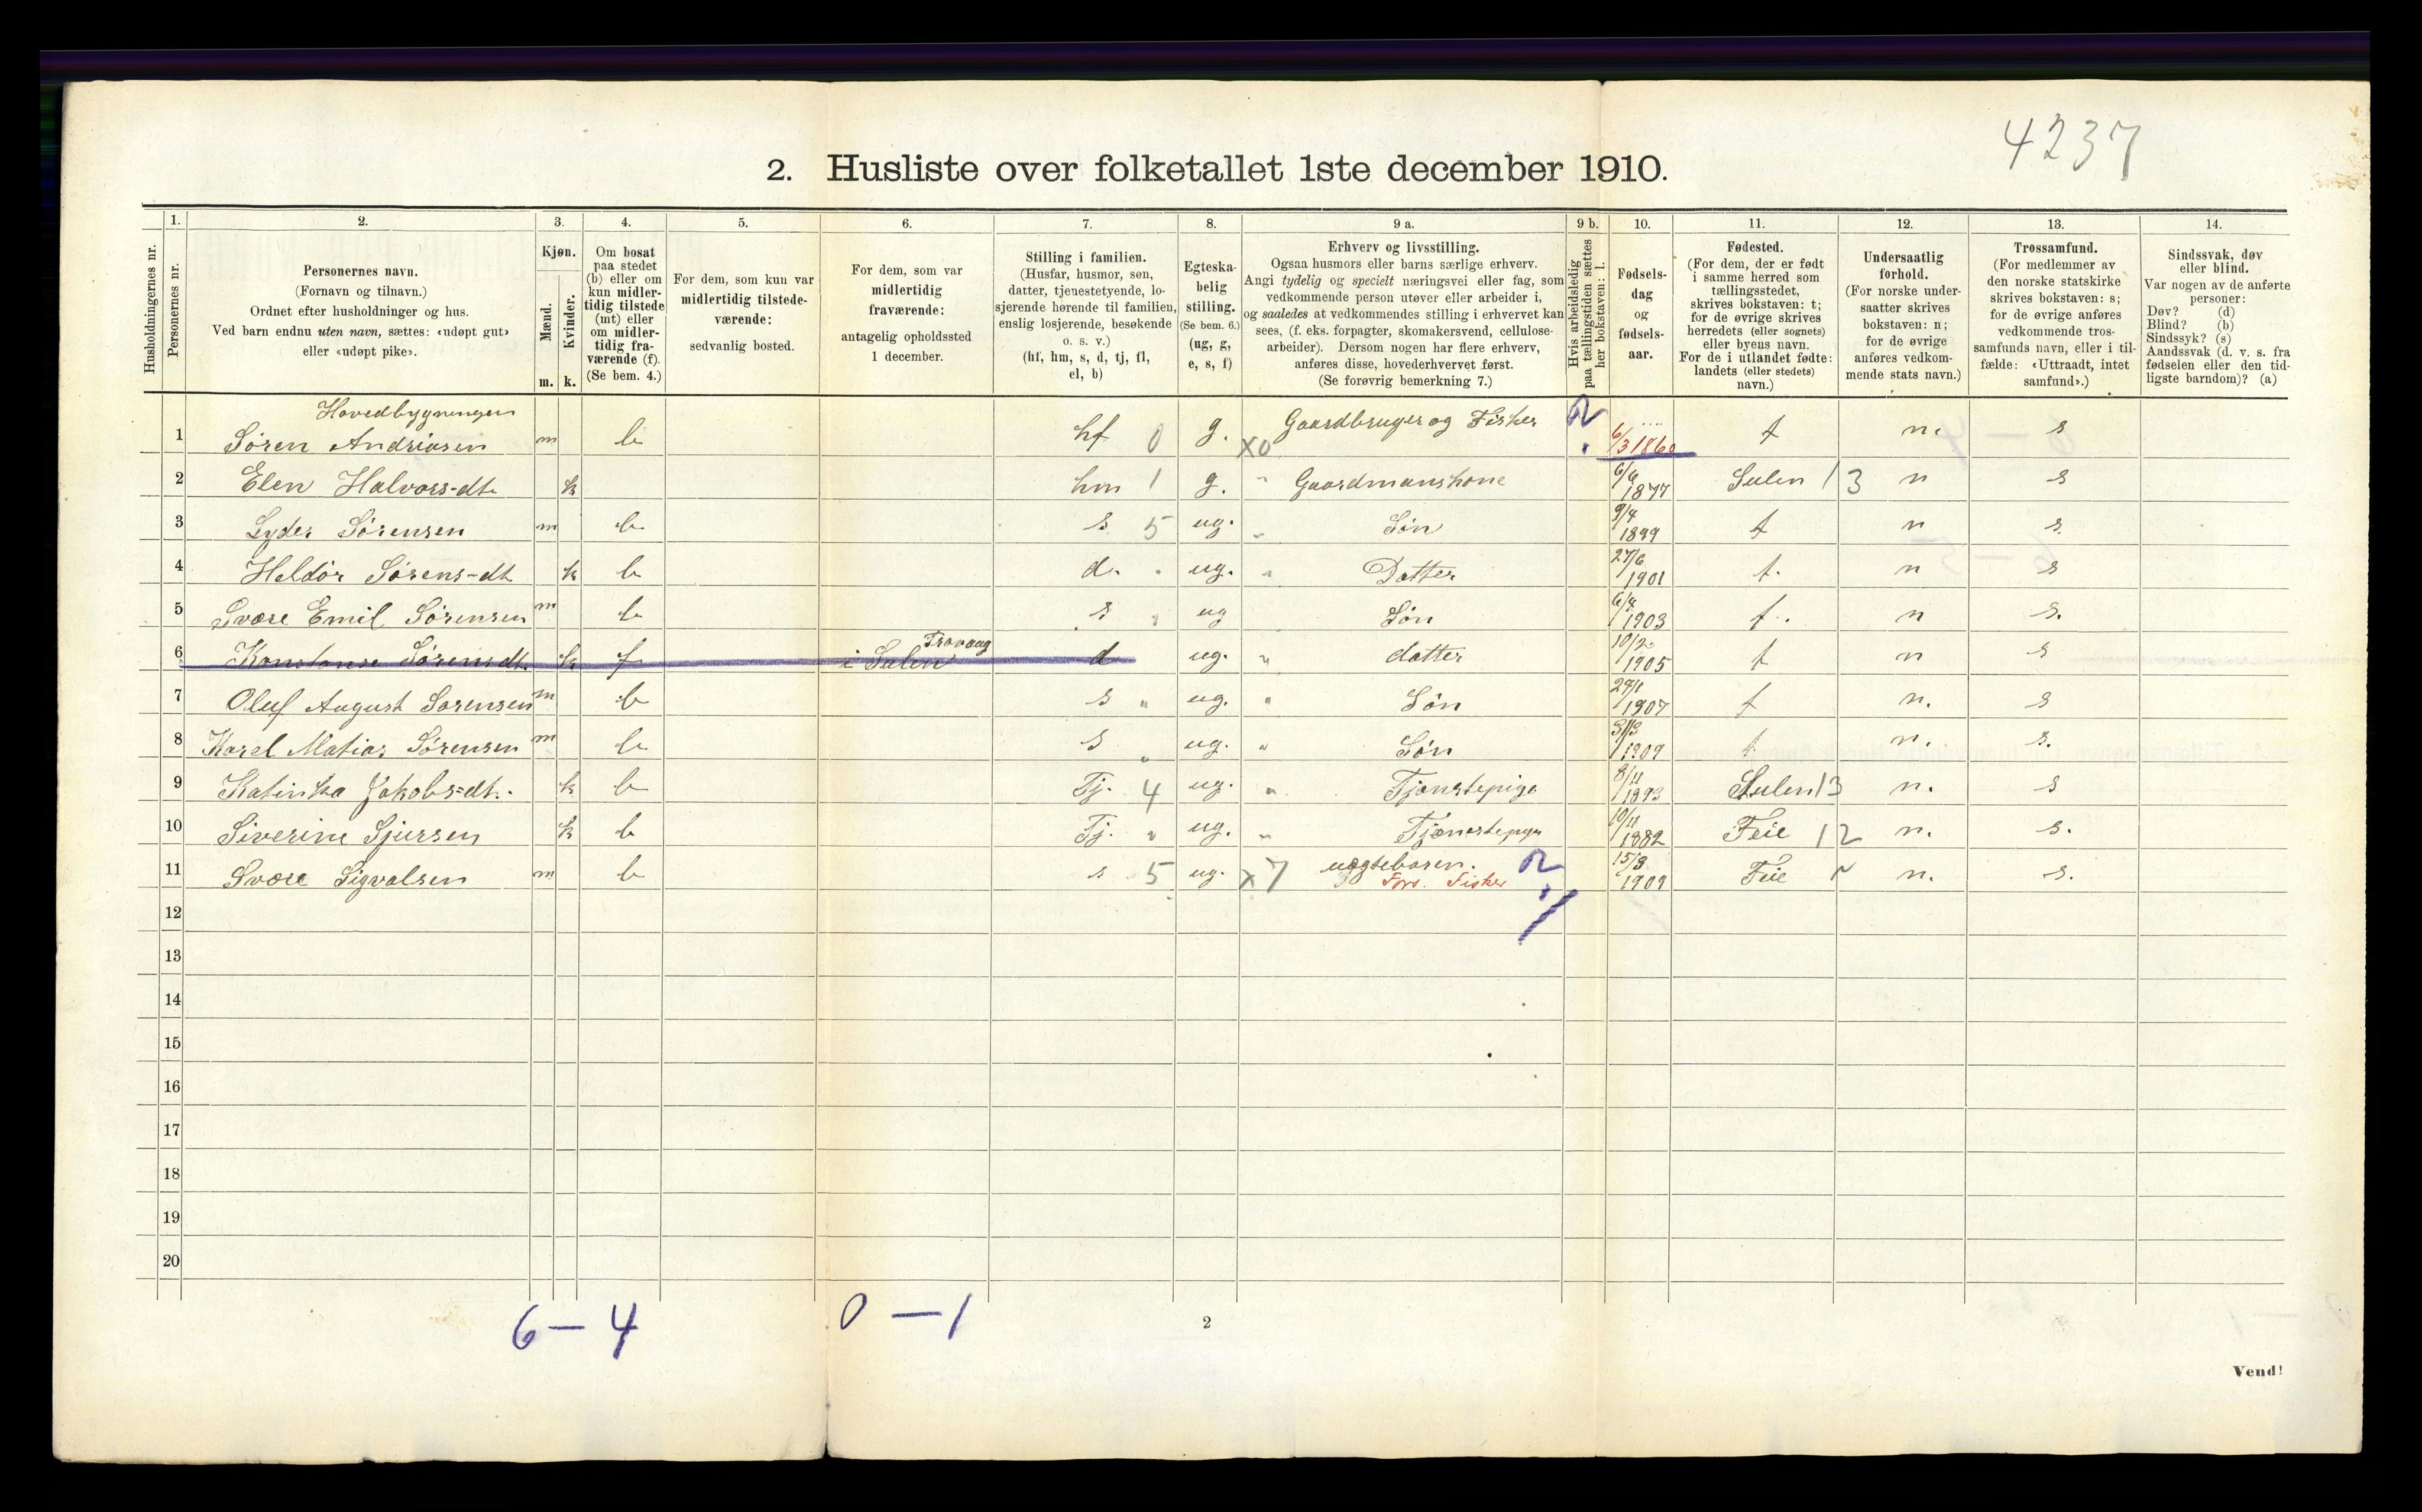 4237
2. Husliste over folketallet 1ste december 1910.
Husholdningernes nr.
1. Personernes nr.
2. Personernes navn. (Fornavn og tilnavn.) Ordnet efter husholdninger og hus. Ved barn endnu uten navn, sættes: «udøpt gut» eller «udøpt pike».
3. Kjøn. Mænd. m. Kvinder. k.
4. Om bosat paa stedet (b) eller om kun midlertidig tilstede (mt) eller om midlertidig fraværende (f). (Se bem. 4.)
5. For dem, som kun var midlertidig tilstedeværende: sedvanlig bosted.
6. For dem, som var midlertidig fraværende: antagelig opholdssted 1 december.
7. Stilling i familien. (Husfar, husmor, søn, datter, tjenestetyende, losjerende hørende til familien, enslig losjerende, besøkende o. s. v.) (hf, hm, s, d, tj, fl, el, b)
8. Egteskabelig stilling. (Se bem. 6.) (ug, g, e, s, f)
9 a. Erhverv og livsstilling. Ogsaa husmors eller barns særlige erhverv. Angi tydelig og specielt næringsvei eller fag, som vedkommende person utøver eller arbeider i, og saaledes at vedkommendes stilling i erhvervet kan sees, (f. eks. forpagter, skomakersvend, cellulosearbeider). Dersom nogen har flere erhverv, anføres disse, hovederhvervet først. (Se forøvrig bemerkning 7.)
9 b. Hvis arbeidsledig paa tællingstiden sættes her bokstaven: l.
10. Fødselsdag og fødselsaar.
11. Fødested. (For dem, der er født i samme herred som tællingsstedet, skrives bokstaven: t; for de øvrige skrives herredets (eller sognets) eller byens navn. For de i utlandet fødte: landets (eller stedets) navn.)
12. Undersaatlig forhold. (For norske undersaatter skrives bokstaven: n; for de øvrige anføres vedkommende stats navn.)
13. Trossamfund. (For medlemmer av den norske statskirke skrives bokstaven: s; for de øvrige anføres vedkommende trossamfunds navn, eller i tilfælde: «Uttraadt, intet samfund».)
14. Sindssvak, døv eller blind. Var nogen av de anførte personer: Døv? (d) Blind? (b) Sindssyk? (s) Aandssvak (d. v. s. fra fødselen eller den tidligste barndom)? (a)
Hovedbygningen
1 Søren Andriasen m b hf 0 g. X0 Gaardbruger og Fisker 2 6/3 1860 t n. s
2 Elen Halvors-dt. k hm 1 g. " Gaardmanskone 6/6 1877 Sulen 13 n s
3 Lyder Sørensen m b s 5 ug. " Søn 9/4 1899 t n s.
4 Heldør Sørens-dt k b d. " ug. " Datter 27/6 1901 t. n s
5 Svære Emil Sørensen m b s " ug Søn 6/4 1903 t. n s.
6 Konstanse Sørensdt. k f i Sulen Travaag d ug. " datter 10/2 1905 t n s
7 Oluf August Sørensen m b s " ug. " Søn 24/1 1907 t n. s
8 Karel Matias Sørensen m b s " ug. " Søn 31/3 1909 t n. s.
9 Katinka Jakobs=dt. k b Tj. 4 ug. " Tjenestepige 8/11 1893 Sulen 13 n. s
10 Siverine Sjursen k b Tj. " ug. " Tjenestepige 10/11 1882 Feie 12 n. s.
11 Svære Sigvalsen m b s 5 ug. X7 uægteboren. Fors. Fisker 2 15/8 1909 Feie " n. s.
12
13
14
15
16
17
18
19
20
6 — 4 0 — 1
2
Vend!